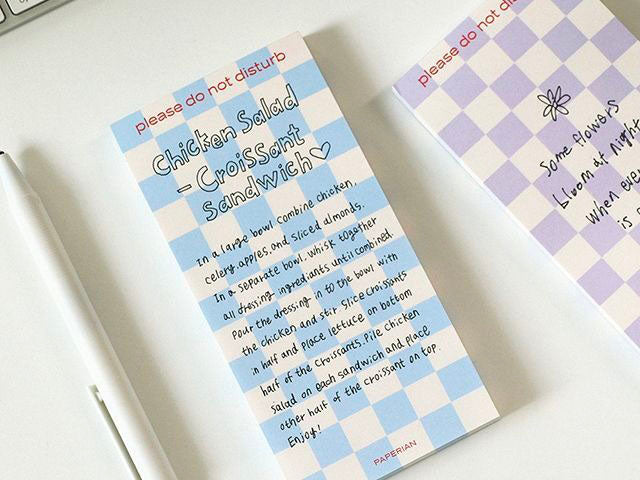 please do not disturb
Chicken Salad
- Croissant
Sandwich♡
In a large bowl combine chicken,
celery, apples, and sliced almonds.
In a separate bowl, whisk together
all dressing ingrediants until combined.
Pour the dressing in to the bowl with
the chicken and stir. Slice croissants
in half and place lettuce on bottom
half of the croissants. Pile chicken
salad on each sandwich and place
other half of the croissant on top.
Enjoy!
PAPERIAN
please do not disturb
Some flowers
bloom at night
When
is